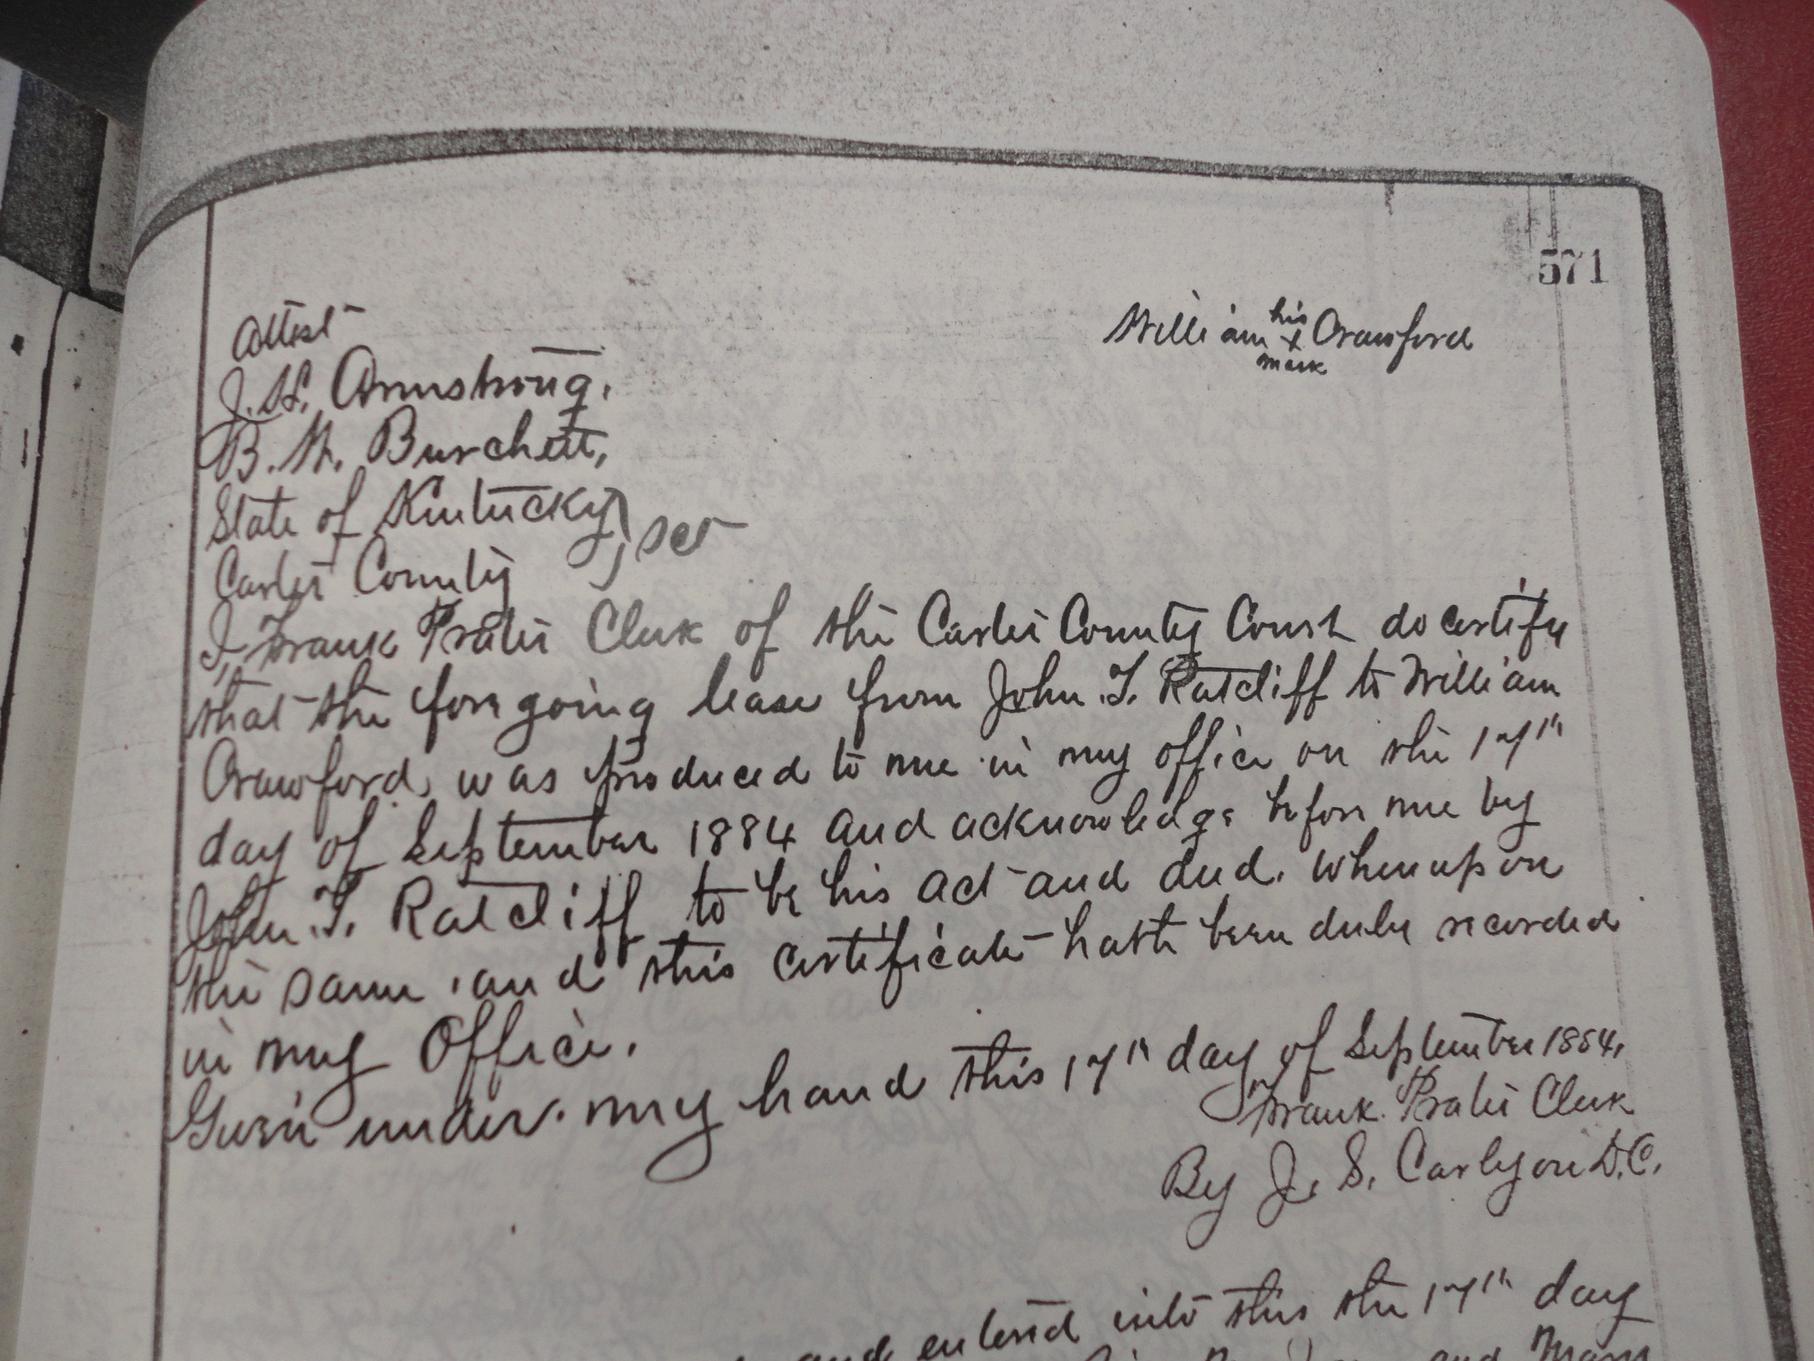 571
William his x mark Crawford
Attest
J. H. Armstrong.
B. H. Burchett,
State of Kentucky } sct
Carter County
I, Frank Prater Clerk of the Carter County Court do certify
that the foregoing lease from John T. Ratcliff to William
Crawford, was produced to me in my office on the 17th
day of September 1884 and acknowledge before me by
John T. Ratcliff to be his act and deed. Whereupon
the same and this certificate hath been duly recorded
in my Office.
Given under my hand this 17th day of September 1884,
Frank Prater Clerk
By J. S. Carlyon D.C.
and entered into this the 17th day
and Mary